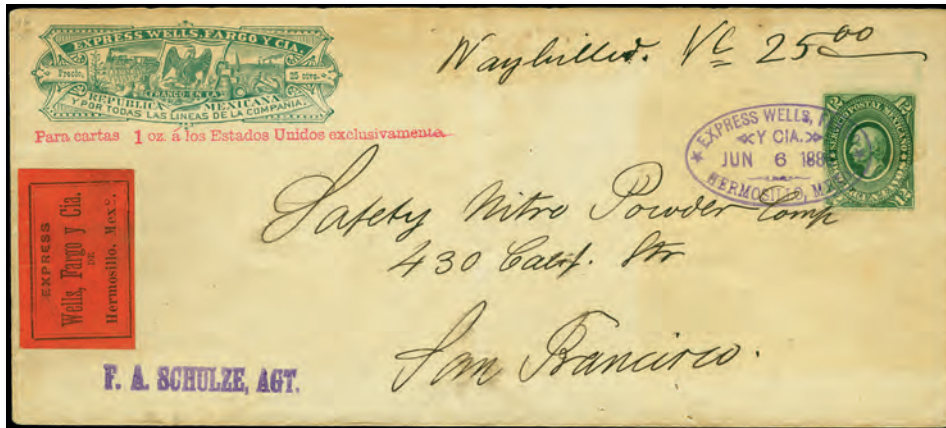 EXPRESS WELLS, FARGO Y CIA.
Precio, 25 ctvs.
FRANCO EN LA
REPUBLICA MEXICANA
Y POR TODAS LAS LINEAS DE LA COMPAÑIA.
Para cartas 1 oz. á los Estados Unidos exclusivamente
Waybilled. Vc 25 00
EXPRESS WELLS, F
Y CIA.
JUN 6 188
HERMOSILLO, M
12 12
SERVICIO POSTAL MEXICANO
EXPRESS
Wells, Fargo y Cia.
DE
Hermosillo, Mexo.
Safety Nitro Powder Comp
430 Calif. Str
San Francisco.
F. A. SCHULZE, AGT.